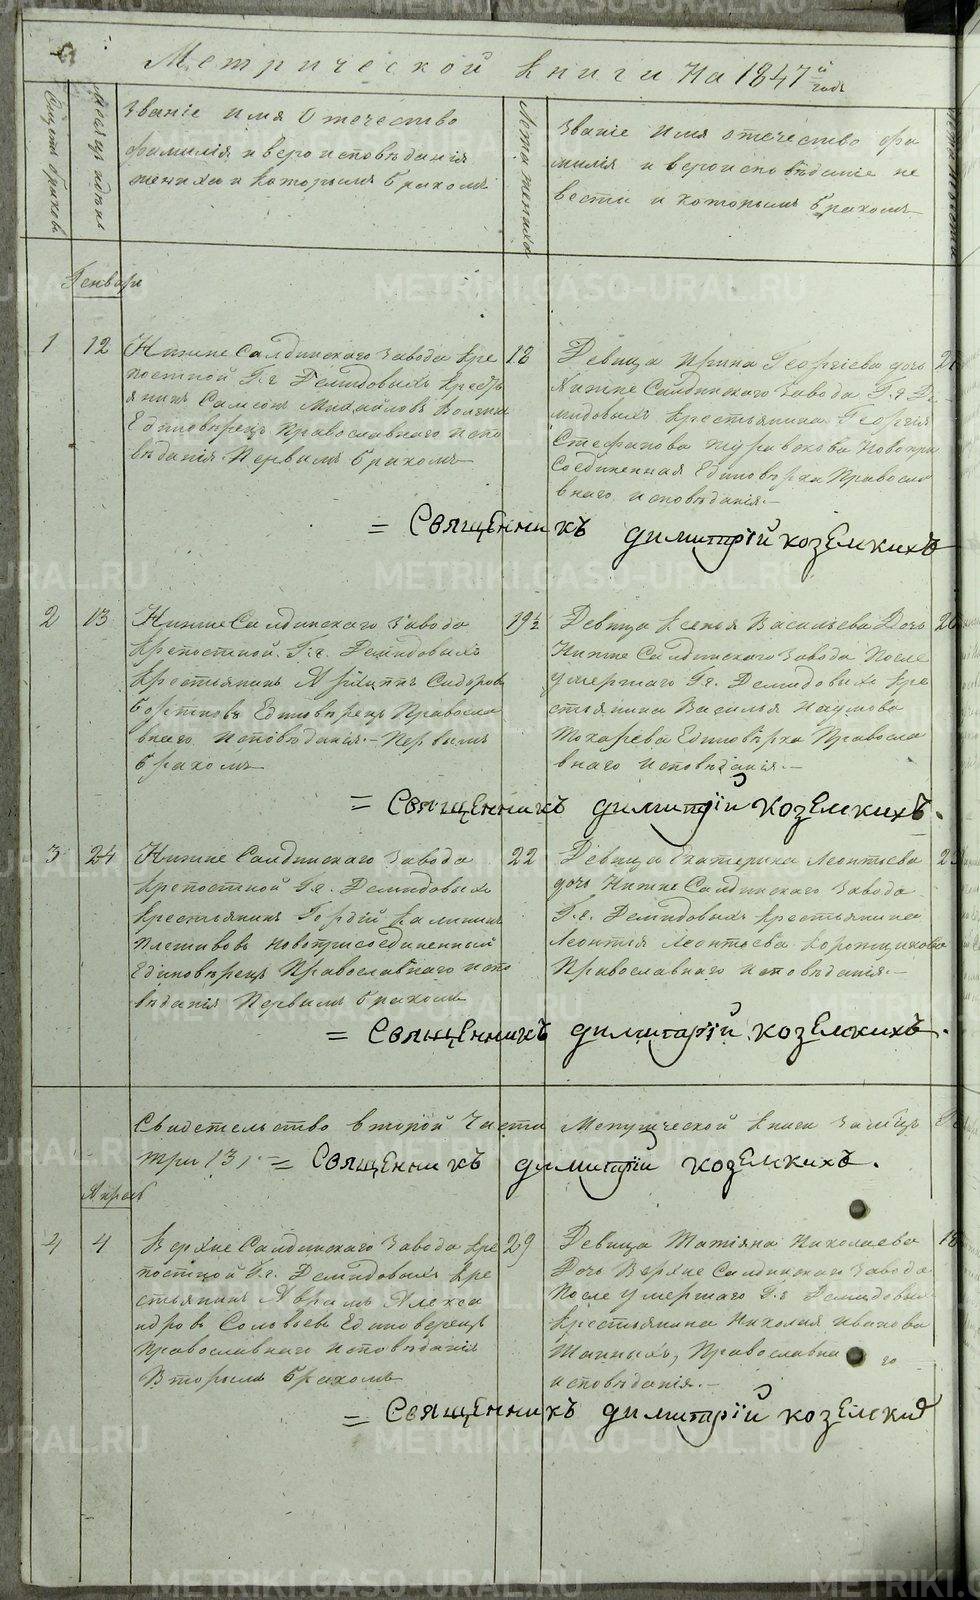 Метрической книги на 1847й годъ
Счетъ браковъ
Месяцъ и день
Званіе имя отечество
фамилія и вероисповѣданія
жениха и которымъ бракомъ
Лѣта жениха
Званіе имя отечество фа
милія и вероисповѣданіе не
весты и которымъ бракомъ
Лѣта невесты
Генварь
1
12
Нижне Салдинскаго завода кре
постной Г.г. Демидовыхъ кресть
янинъ Самсонъ Михайловъ
Единовѣрецъ Православнаго испо
вѣданія Первымъ бракомъ
18
Девица Ирина Георгіева дочь
Нижне Салдинскаго завода Г.г. Де
мидовыхъ крестьянина Георгія
Стефанова Журавкова Новопри
соединенная Единовѣрка Правосла
внаго исповѣданія.
= Священникъ Димитрій Коземкихъ
2
13
Нижне Салдинскаго завода
крепостной Г.г. Демидовыхъ
крестьянинъ Архиппъ Сидоровъ
Бортновъ Единовѣрецъ Правосла
внаго исповѣданія.- Первымъ
бракомъ
19½
Девица Ксенья Васильева Дочь
Нижне Салдинскаго завода После
умершаго Г.г. Демидовыхъ кре
стьянина Василья Наумова
Токарева Единовѣрка Правосла
внаго исповѣданія.-
20
= Священникъ Димитрій Коземкихъ.
3
24
Нижне Салдинскаго завода
крепостной Г.г. Демидовыхъ
крестьянинъ Гордій Калининъ
Плешивовъ новоприсоединенный
Единовѣрецъ Православнаго испо
вѣданія Первымъ бракомъ
22
Девица Екатерина Леонтьева
дочь Нижне Салдинскаго завода
Г.г. Демидовыхъ крестьянина
Леонтія Леонтьева
Православнаго исповѣданія.-
= Священникъ Димитрій Коземкихъ.
Свидетельство второй Части Метрической книги
три /3/.- = Священникъ Димитрій Коземкихъ.
Апрель
4
4
Верхне Салдинскаго завода кре
постной Г.г. Демидовыхъ кре
стьянинъ Аврамъ Алекса
ндровъ Соловьевъ Единоверецъ
Православнаго исповѣданія
Вторымъ бракомъ
29
Девица Татіяна Николаева
Дочь Верхне Салдинскаго завода
После умершаго Г.г. Демидовыхъ
крестьянина Николая Иванова
Православнаго
исповѣданія.-
18
= Священникъ Димитрій Коземкихъ
METRIKI.GASO-URAL.RU